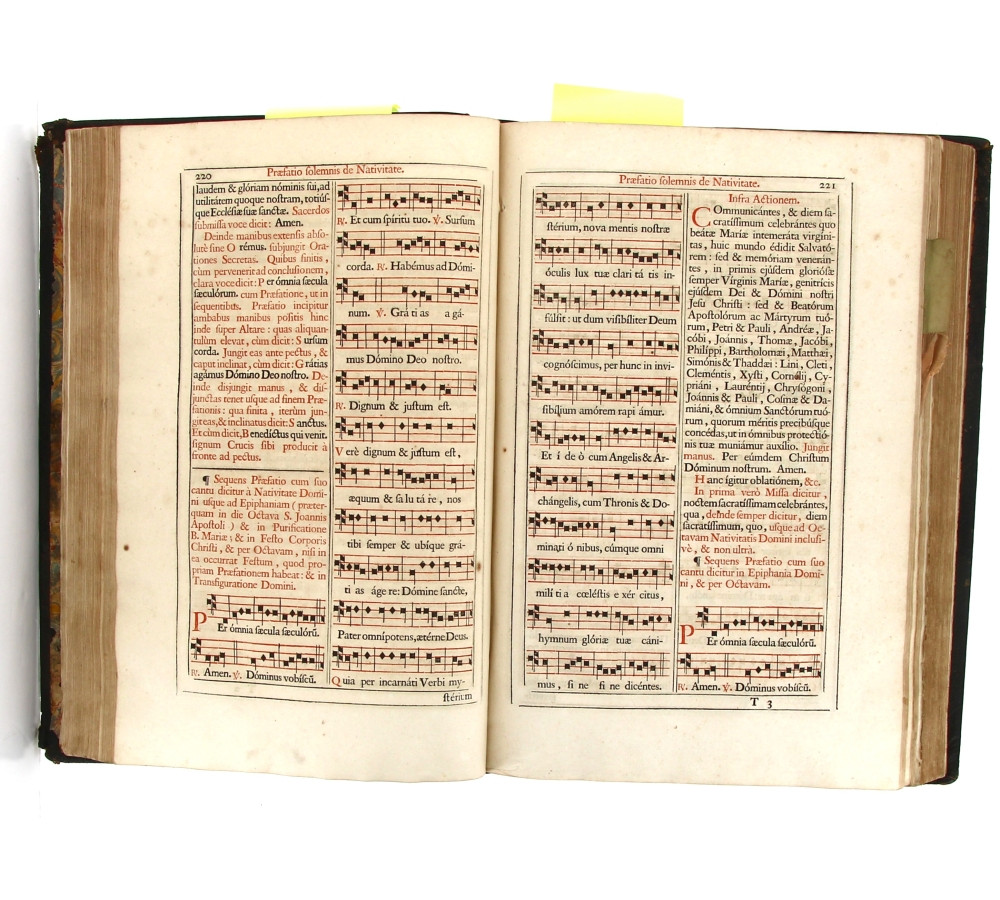 220
Præfatio solemnis de Nativitate.
laudem & glóriam nóminis sui, ad
utilitátem quoque nostram, totiús-
que Ecclésiæ suæ sanctæ. Sacerdos
submissa voce dicit: Amen.
Deinde manibus extensis abso-
lutè sine O rémus. subjungit Ora-
tiones Secretas. Quibus finitis,
cùm pervenerit ad conclusionem,
clara voce dicit: P er ómnia sæcula
sæculórum. cum Præfatione, ut in
sequentibus. Præfatio incipitur
ambabus manibus positis hinc
inde super Altare: quas aliquan-
tulùm elevat, cùm dicit: S ursum
corda. Jungit eas ante pectus, &
caput inclinat, cùm dicit: G rátias
agámus Dómino Deo nostro. De-
inde disjungit manus, & dis-
junctas tenet usque ad finem Præ-
fationis: qua finita, iterùm jun-
git eas, & inclinatus dicit: S anctus.
Et cùm dicit, B enedíctus qui venit.
signum Crucis sibi producit à
fronte ad pectus.
¶ Sequens Præfatio cum suo
cantu dicitur à Nativitate Domi-
ni usque ad Epiphaniam (præter-
quam in die Octava S. Joannis
Apostoli) & in Purificatione
B. Mariæ; & in Festo Corporis
Christi, & per Octavam, nisi in
ea occurrat Festum, quod pro-
priam Præfationem habeat: & in
Transfiguratione Domini.
P Er ómnia sæcula sæculórũ.
℟. Amen. ℣. Dóminus vobíscũ.
℟. Et cum spíritu tuo. ℣. Sursum
corda. ℟. Habémus ad Dómi-
num. ℣. Grá ti as a gá-
mus Dómino Deo nostro.
℟. Dignum & justum est.
V erè dignum & justum est,
æquum & sa lu tá re, nos
tibi semper & ubíque grá-
ti as áge re: Dómine sancte,
Pater omnípotens, ætérne Deus.
Q uia per incarnáti Verbi my-
stérium
Præfatio solemnis de Nativitate.
221
stérium, nova mentis nostræ
óculis lux tuæ clari tá tis in-
fúlsit: ut dum visibíliter Deum
cognóscimus, per hunc in invi-
sibílium amórem rapi ámur.
Et í de ò cum Angelis & Ar-
chángelis, cum Thronis & Do-
minati ó nibus, cúmque omni
milí ti a cœléstis e xér citus,
hymnum glóriæ tuæ cáni-
mus, si ne fi ne dicéntes.
Infra Actionem.
COmmunicántes, & diem sa-
cratíssimum celebrántes quo
beátæ Maríæ intemeráta virgíni-
tas, huic mundo édidit Salvató-
rem: sed & memóriam venerán-
tes, in primis ejúsdem gloriósæ
semper Vírginis Maríæ, genitrícis
ejúsdem Dei & Dómini nostri
Jesu Christi: sed & Beatórum
Apostolórum ac Mártyrum tuó-
rum, Petri & Pauli, Andréæ, Ja-
cóbi, Joánnis, Thomæ, Jacóbi,
Philíppi, Bartholomæi, Matthæi,
Simónis & Thaddæi: Lini, Cleti,
Cleméntis, Xysti, Cornélij, Cy-
priáni, Lauréntij, Chrysógoni,
Joánnis & Pauli, Cosmæ & Da-
miáni, & ómnium Sanctórum tuó-
rum, quorum méritis precibúsque
concédas, ut in ómnibus protectió-
nis tuæ muniámur auxílio. Jungit
manus. Per eúmdem Christum
Dóminum nostrum. Amen.
H anc ígitur oblatiónem, &c.
In prima verò Missa dicitur,
noctem sacratíssimam celebrántes,
qua, deinde semper dicitur, diem
sacratíssimum, quo, usque ad Oc-
tavam Nativitatis Domini inclusi-
vè, & non ultrà.
¶ Sequens Præfatio cum suo
cantu dicitur in Epiphania Domi-
ni, & per Octavam.
P Er ómnia sæcula sæculórũ.
℟. Amen. ℣. Dóminus vobíscũ.
T 3